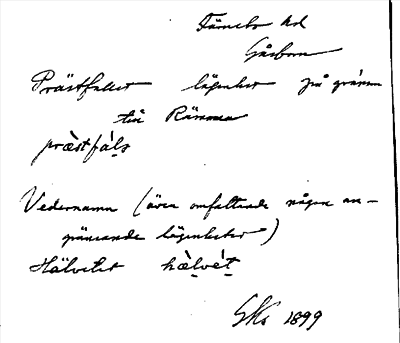 Färnebo hd
Gåsborn
Prästfallet lägenhet på gränsen
till Rämmen
præ̀stfál̥ə
Vedernamn (även omfattande någon an-
gränsande lägenheter)
Hälvetet hæ̀lvét̥
GKs 1899